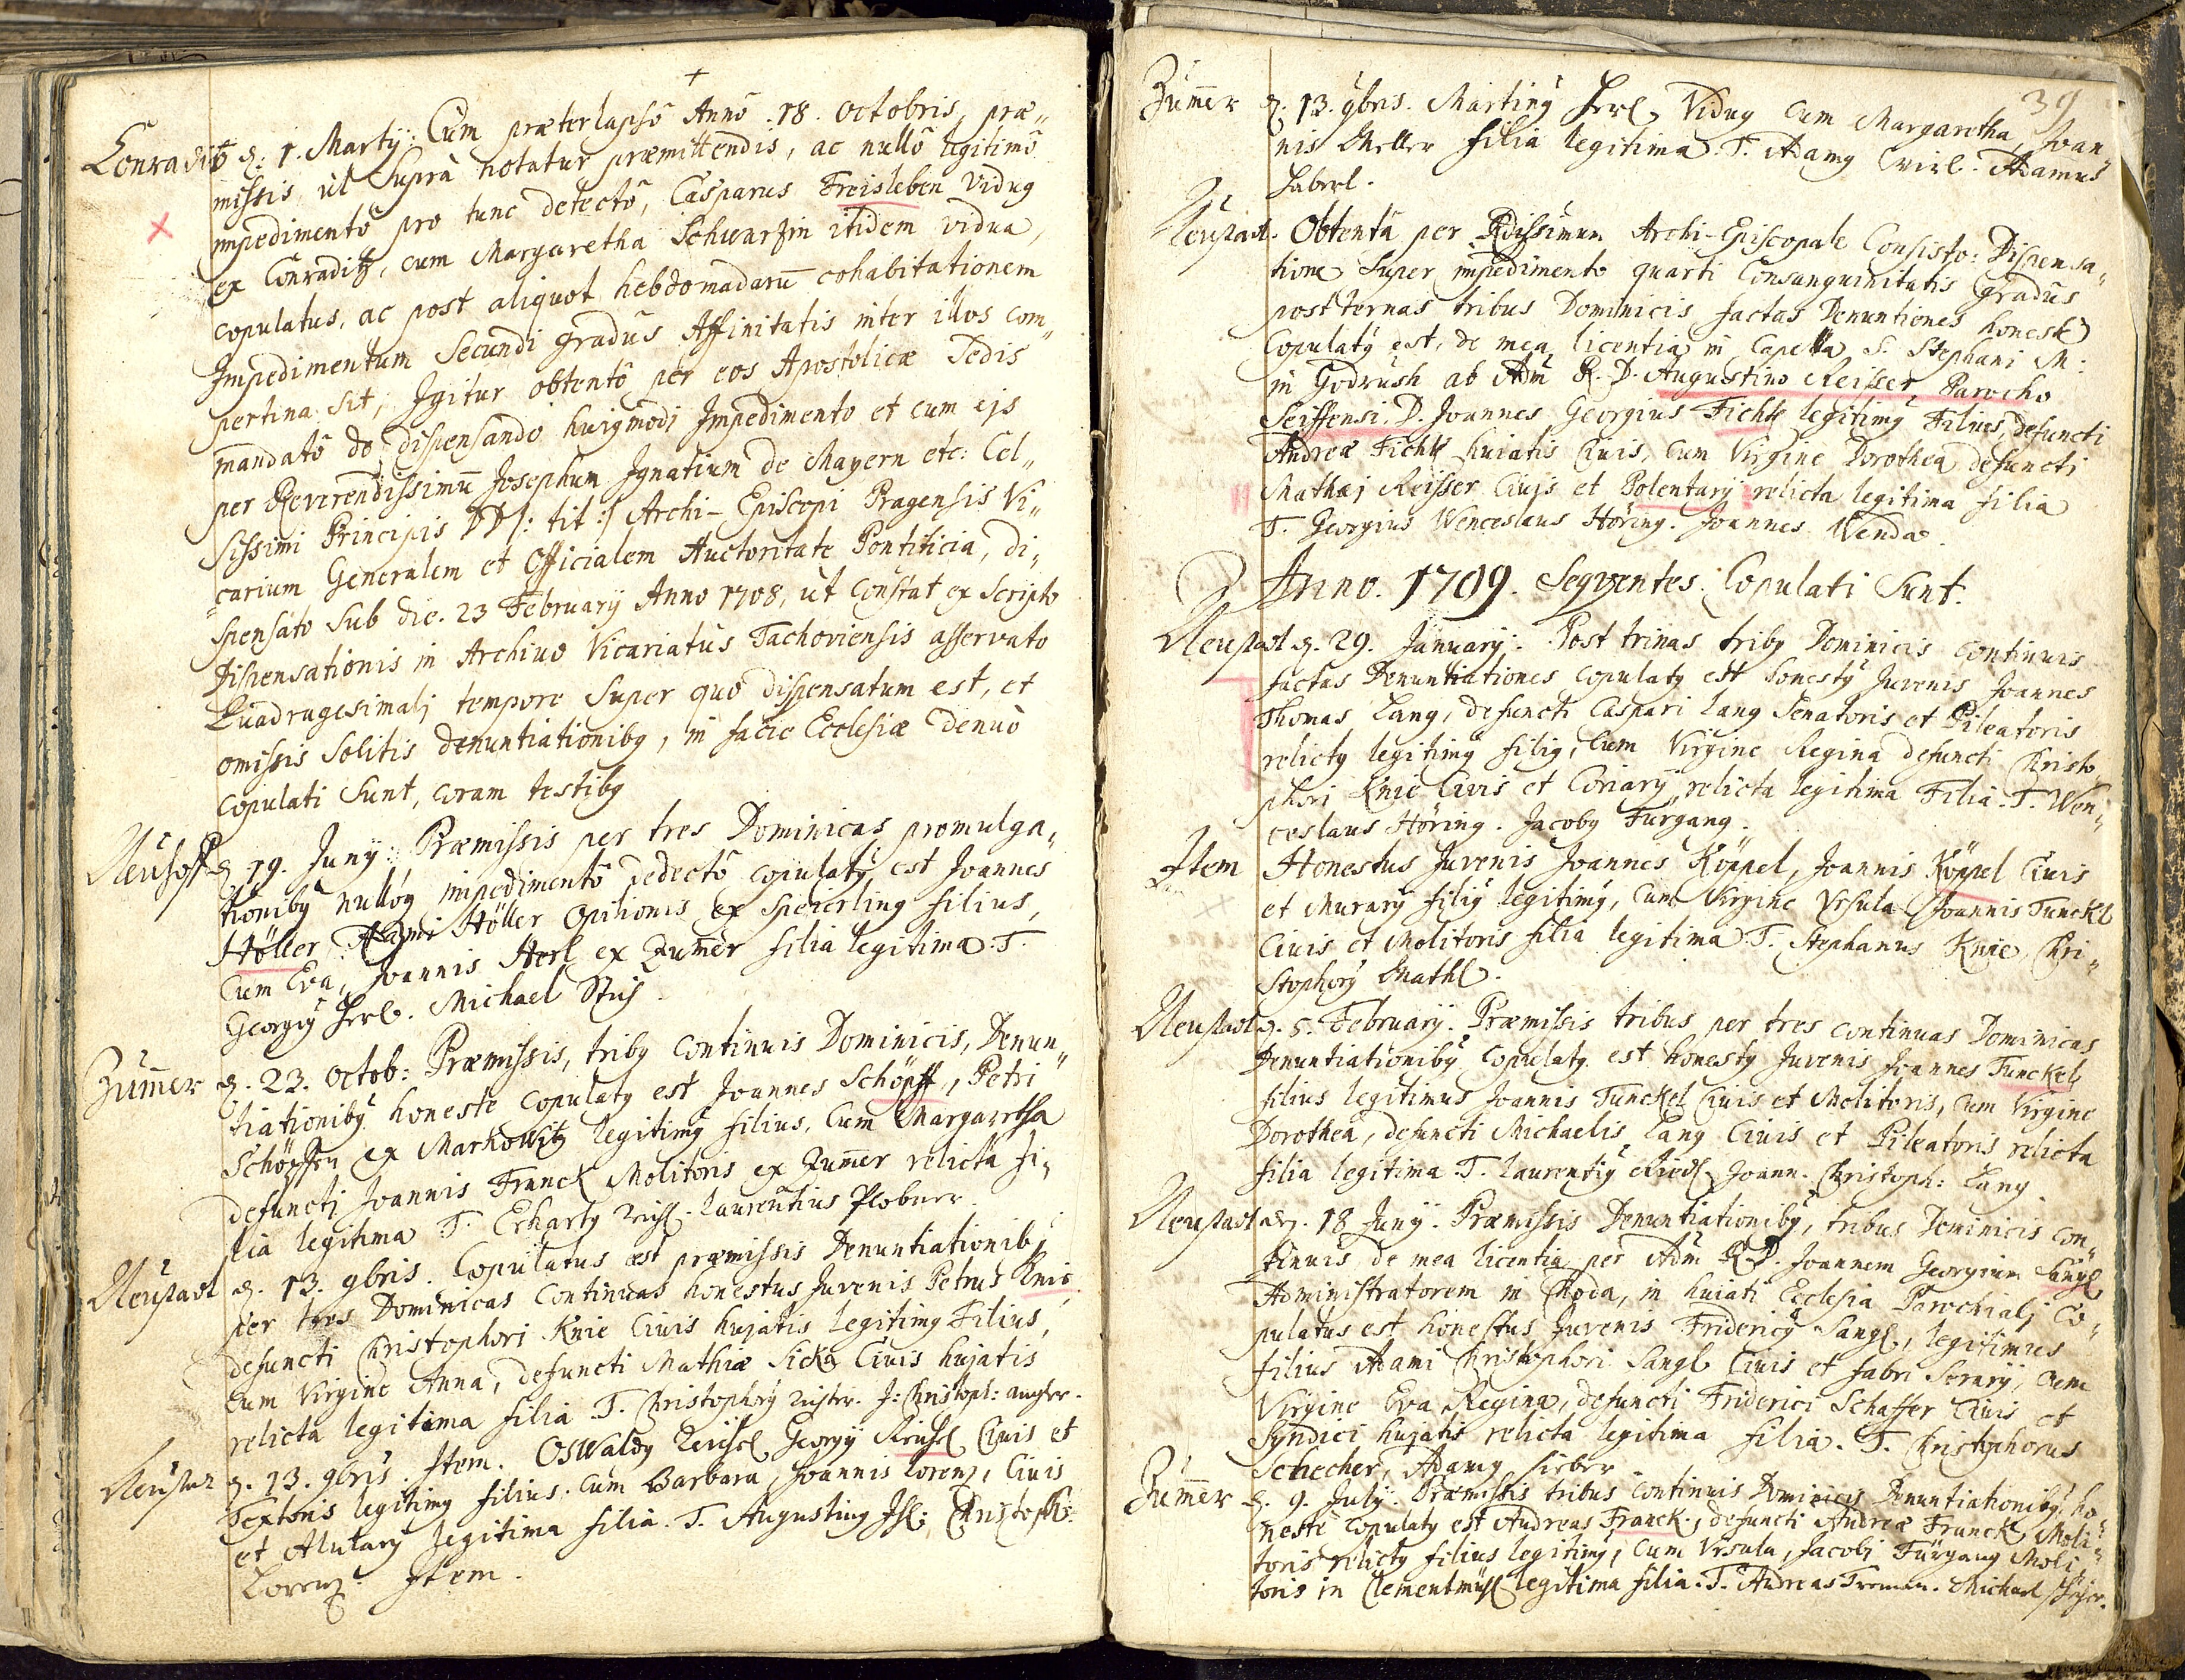 +
Conraditz d. 1. Martÿ: Cum præterlapsô Annô .18. Octobris, præ„
missis, ut Suprà notatur præmittendis, ac nullô legitimô
impedimentô pro tunc detectô, Casparus Freisleben Vidug
ex Conraditz, cum Margaretha Schwarzin itidem vidua,
copulatus, ac post aliquot hebdomadarū cohabitationem
Impedimentum Secundi gradûs Affinitatis inter illos com„
pertina sit, Igitur obtentô per eos Apostolicæ Sedis
mandatô de dispensando huigmodi Impedimento et cum ejs
per Reverendissimū Josephum Ignatium de Mayern etc: Cel„
sissimi Principis DD/: tit :/ Archi-Episcopi Pragensis Vi„
carium Generalem et Officialem Auctoritate Pontificia, di„
spensato Sub die. 23 Februarÿ Anno 1708, ut Constat ex Scripto
Dispensationis in Archivo Vicariatûs Tachoviensis asservato
Quadragesimalj tempore Super quo dispensatum est, et
omissis Solitis denuntiationibg, in facie Ecclesiæ denuò
copulati Sunt, coram testibg
Neuhoff d 19. Junÿ: Præmissis per tres Dominicas promulga„
tionibg nullóg impedimentô dedectô copulatg est Joannes
Höller, Adami Höller Opilionis ex Speierling filius,
Cum Eva, Joannis Herl ex Zum̄er filia legitima. T.
Georgig Herl. Michael
Zum̄er d. 23. Octob: Præmissis, tribg Continuis Dominicis, Denun„
tiationibg honestè Copulatg est Joannes Schöpff, Petri
Schöpffen ex Markowitz legitimg filius, Cum Margaretha
defuncti Joannis Franck Molitoris ex Zum̄er relicta fi„
lia legitima T. Erhartg . Laurentius Plobner.
Neustadt d. 13. 9bris. Copulatus est præmissis Denuntiationibg
per tres Dominicas Continuas honestus Juvenis Petrus Knie
defuncti Christophori Knie Civis hujatis legitimg Filius,
Cum Virgine Anna, defuncti Mathiæ Civis hujatis
relicta legitima filia. T. Christophorg . J: Christoph:
Neustat d. 13. 9bris. Item. Oswaldg Georgÿ Civis et
Textoris legitimg filius. Cum Barbara, Joannis Lorenz, Civis
et Alutarÿ legitima filia. T. Augusting Christoph:
Lorenz. Item.
39
Zum̄er d. 13. 9bris. Marting Herl, Vidug Cum Margaretha, Joan„
nis Meller filia legitima. T. Adamg . Adamus
Haberl.
Neustad. Obtentâ per Rdissimum Archi-Episcopale Consisto: Dispensa„
tione Super impedimento quarti Consanguinitatis gradûs
post ternas tribus Dominicis factas Denuntiones honestè
Copulatg est, de mea licentia in Capella S. Stephani M:
in Godrusch ab Adm̄ R. D. Augustino Reisser Parocho
Seiffensi. D. Joannes Georgius Fichtl legitimg Filius, defuncti
Andreæ Fichtl huiatis Civis, Cum Virgine Dorothea defuncti
Mathæj Reisser Civis et Polentarÿ relicta legitima filia
T. Georgius Wenceslaus Höring. Joannes Wenda.
Anno. 1709. Seqventes Copulati Sunt.
Neustadt d. 29. Januarÿ: Post trinas tribg Dominicis continuis
factas Denuntiationes Copulatg est honestg Juvenis Joannes
Thomas Lang, defuncti Caspari Lang Senatoris et Pileatoris
relictg legitimg filig, Cum Virgine Regina defuncti Christo
phori Knie Civis et Coriarÿ relicta legitima Filia. T. Wen„
ceslaus Höring. Jacobg Furgang.
Item Honestus Juvenis Joannes Köppel, Joannis Köppel Civis
et Murarÿ filig legitimg, Cum Virgine Ursula Joannis Tunckl
Civis et Molitoris filia legitima. T. Stephanus Knie, Chri„
stophorg Mathl.
Neustadt d. 5. Februarÿ. Præmissis tribus per tres Continuas Dominicas
Denuntiationibg Copulatg est honestg Juvenis Joannes Tunckel
filius legitimus Joannis Tunckel Civis et Molitoris, Cum Virgine
Dorothea, defuncti Michaelis Lang Civis et Pileatoris relicta
filia legitima. T. Laurentig Riedl, Joann. Christoph: Lang.
Neustadt d. 18 Junÿ. Præmissis Denuntiationibg, tribus Dominicis con„
tinuis, de mea licentia per Adm̄ R. D. Joannem Georgium Sangl
Administratorem in Choda, in huiati Ecclesia Parochialj Co„
pulatus est honestus Juvenis Fridericg Sangl, legitimus
filius Adami Christophori Sangl Civis et fabri Serarÿ, Cum
Virgine Eva Regina, defuncti Friderici Schaffer Civis et
Syndici hujatis relicta legitima filia. T. Christophorus
Schecher, Adamg
Zum̄er d. 9. Julÿ. Præmissis tribus Continuis Dominicis Denuntiationibg, ho„
nestè Copulatg est Andreas Franck, defuncti Andreæ Franck Moli„
toris relictg filius legitimg, Cum Ursula, Jacobj Fürgang Moli
toris in legitima filia. T. Andreas . Michael